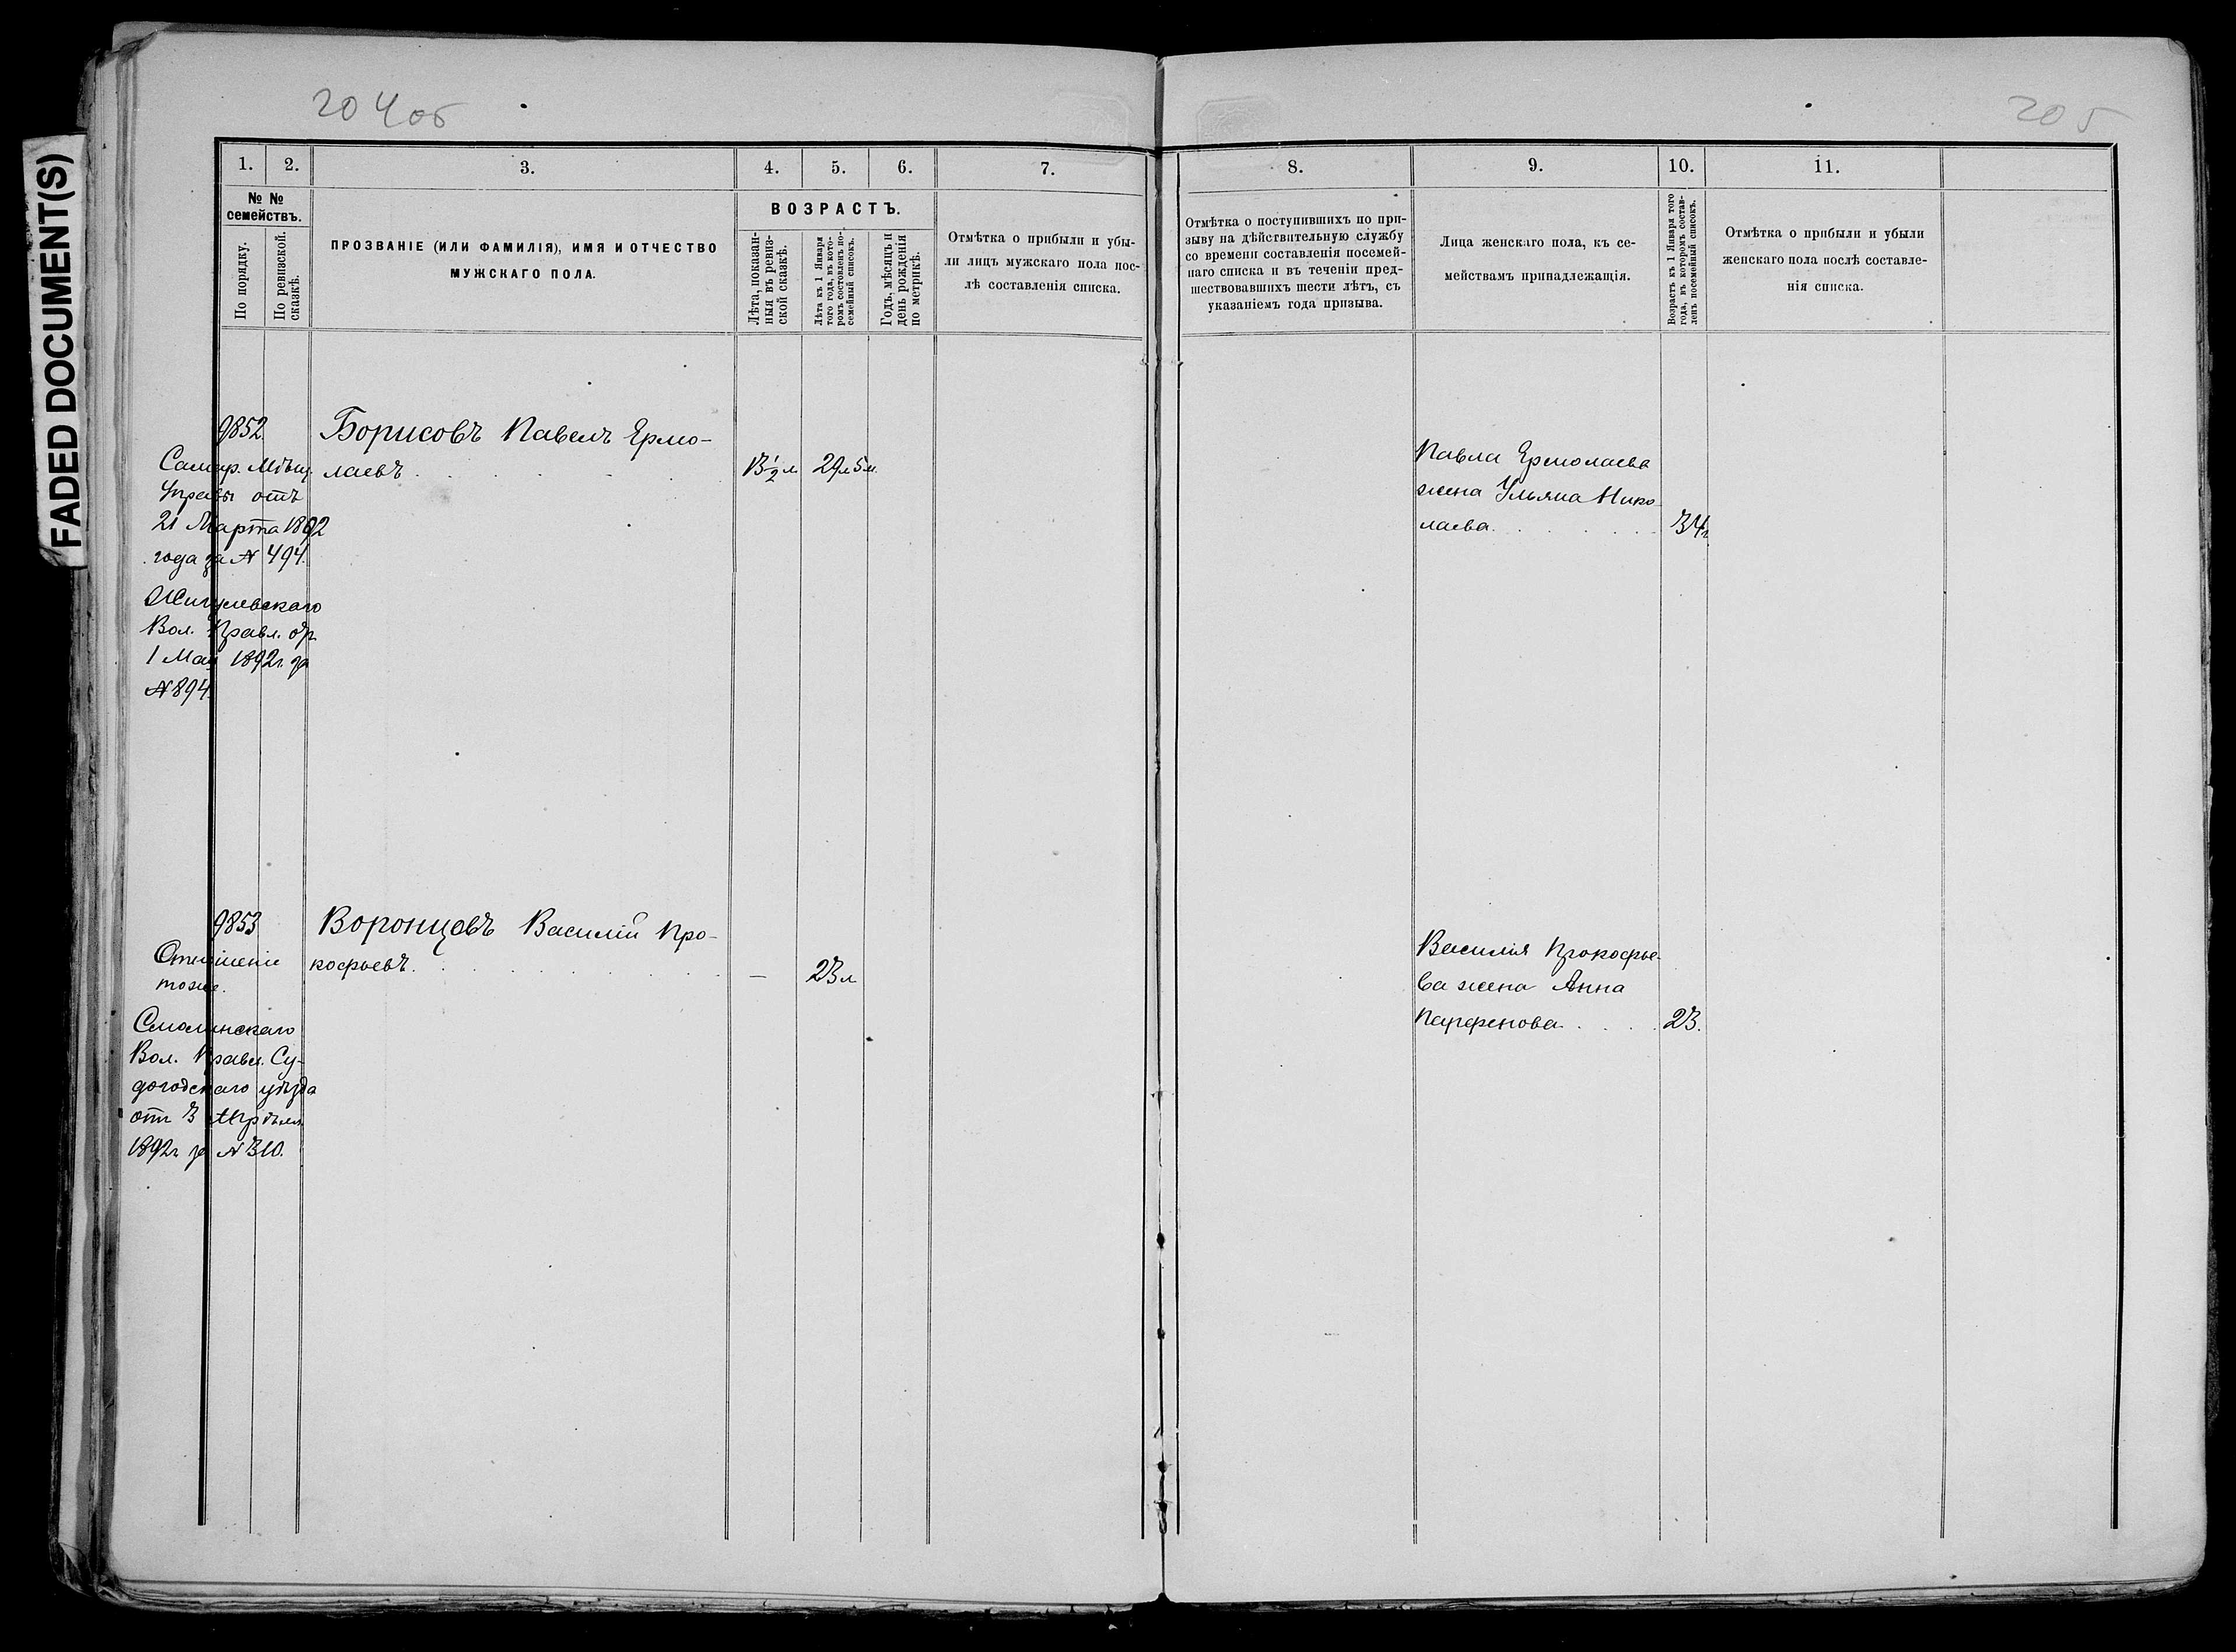 FADED DOCUMENT(S)
204об
205
1.
2.
3.
4.
5.
6.
7.
8.
9.
10.
11.
№ №
семействъ.
По порядку.
По ревизской
сказкѣ.
ПРОЗВАНІЕ (ИЛИ ФАМИЛІЯ), ИМЯ И ОТЧЕСТВО
МУЖСКАГО ПОЛА.
ВОЗРАСТЪ.
Лѣта, показан-
ныя въ ревиз-
ской сказкѣ.
Лѣта къ 1 Января
того года, въ кото-
ромъ составленъ по-
семейный списокъ.
Годъ, мѣсяцъ и
день рожденія
по метрикѣ.
Отмѣтка о прибыли и убы-
ли лицъ мужскаго пола пос-
лѣ составленія списка.
Отмѣтка о поступившихъ по при-
зыву на дѣйствительную службу
со времени составленія посемей-
наго списка и въ теченіи пред-
шествовавшихъ шести лѣтъ, съ
указаніемъ года призыва.
Лица женскаго пола, къ се-
мействамъ принадлежащія.
Возрастъ къ 1 Января того
года, въ которомъ состав-
ленъ посемейный списокъ.
Отмѣтка о прибыли и убыли
женскаго пола послѣ составле-
нія списка.
9852
Борисовъ Павелъ Ермо-
лаевъ
3½ л
29л 5м.
Самар. Мѣщ.
Управы отъ
21 Марта 1892
года за № 494.
Жигулевскаго
Вол. Правл. от
1 Мая 1892г. за
№ 894.
Павла Ермолаева
жена Ульяна Нико-
лаева
34г.
9853
Воронцовъ Василій Про-
кофьевъ
—
23л
Отношеніе
тоже.
Смолинскаго
Вол. Правл. Су-
догодскаго уѣзда
отъ 3 Апрѣля
1892г за № 310.
Василія Прокофье-
ва жена Анна
Парфенова
23.